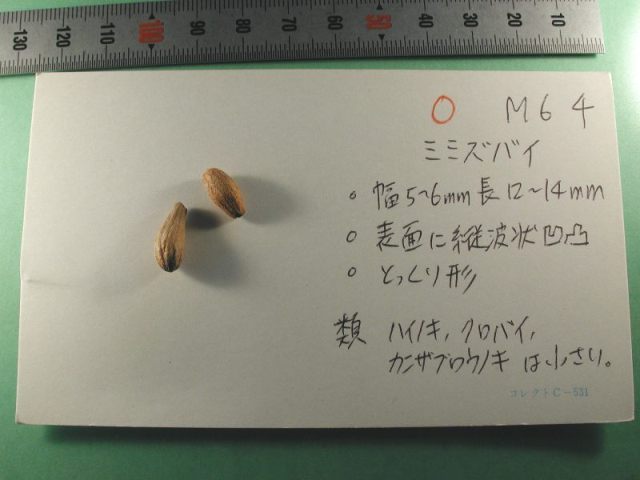 130 120 110 100 90 80 70 60 50 40 30 20 10
O M64
ミミズバイ
○ 幅5~6mm長12~14mm
○ 表面に縦波状凹凸
○ とっくり形
類 ハイノキ,クロバイ,
カンザブロウノキ は小さい。
コレクトC-531